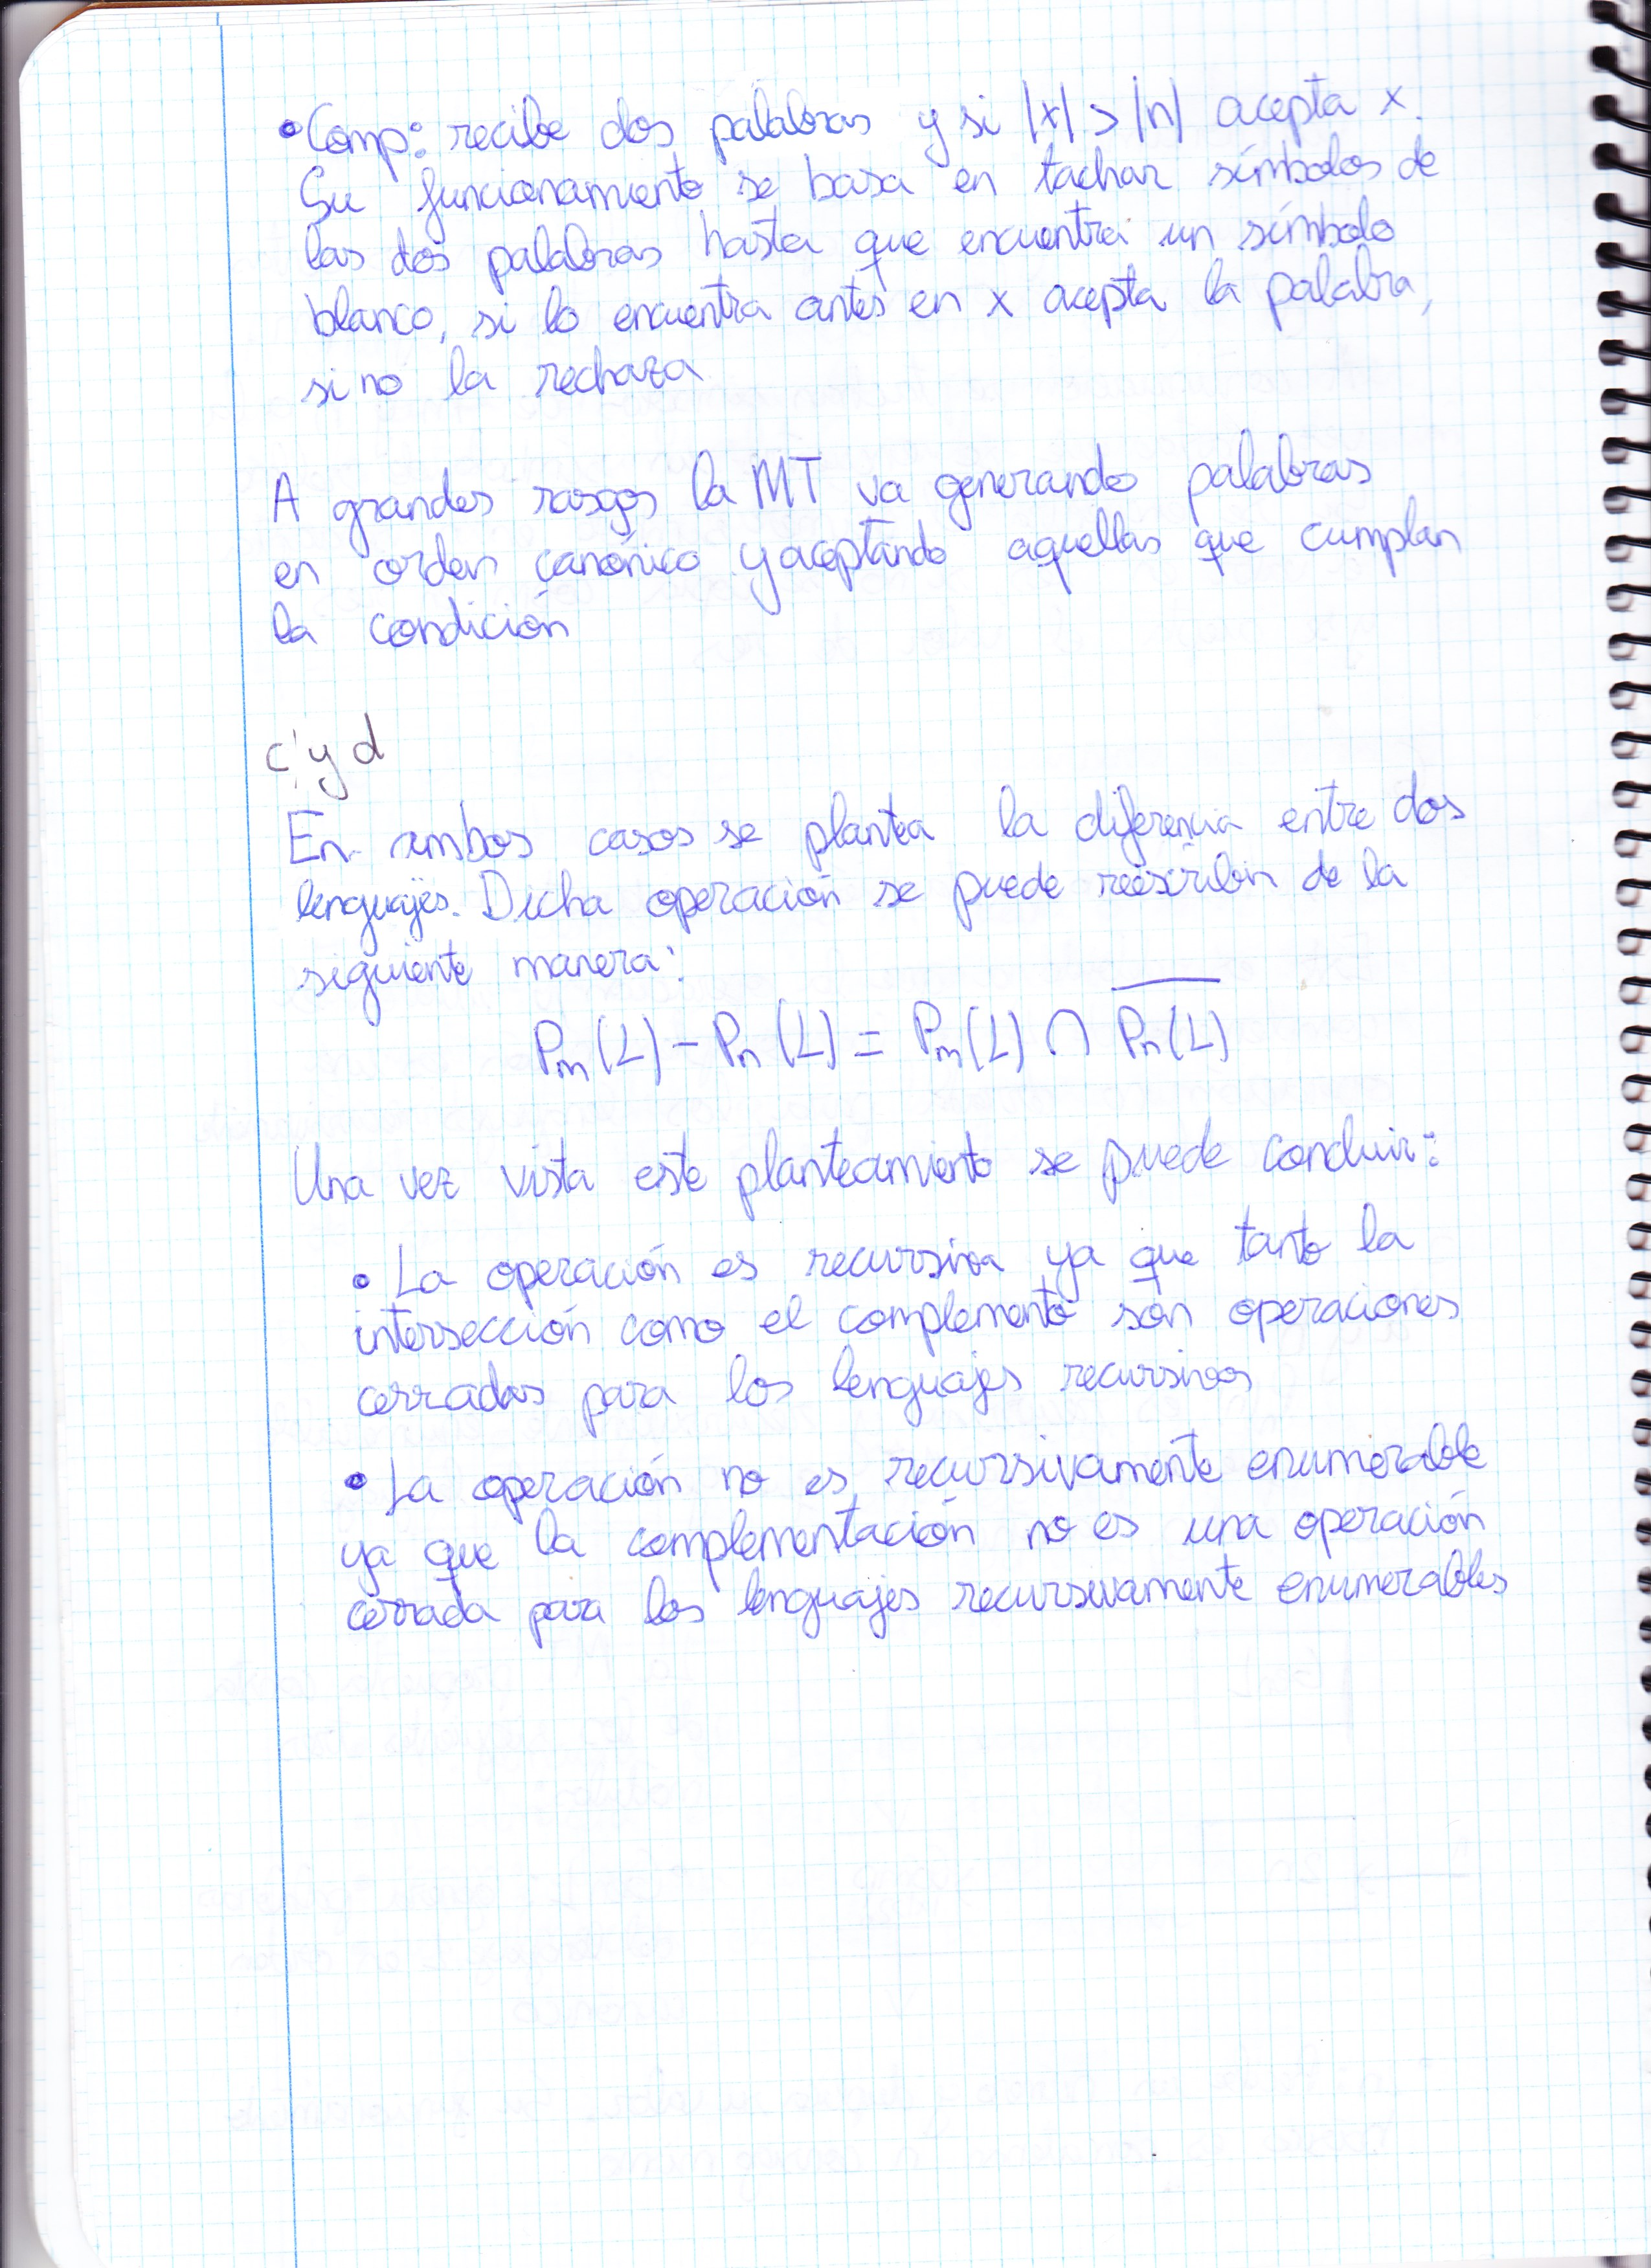 • Comp: recibe dos palabras y si |x| > |n| acepta x.
Su funcionamiento se basa en tachar símbolos de
las dos palabras hasta que encuentra un símbolo
blanco, si lo encuentra antes en x acepta la palabra,
si no la rechaza
A grandes rasgos la MT va generando palabras
en orden canónico y aceptando aquellas que cumplan
la condición
c y d
En ambos casos se plantea la diferencia entre dos
lenguajes. Dicha operación se puede reescribir de la
siguiente manera:
Pm(L) - Pn(L) = Pm(L) ∩ \overline{Pn(L)}
Una vez vista este planteamiento se puede concluir:
• La operación es recursiva ya que tanto la
intersección como el complemento son operaciones
cerradas para los lenguajes recursivos
• La operación no es recursivamente enumerable
ya que la complementación no es una operación
cerrada para los lenguajes recursivamente enumerables